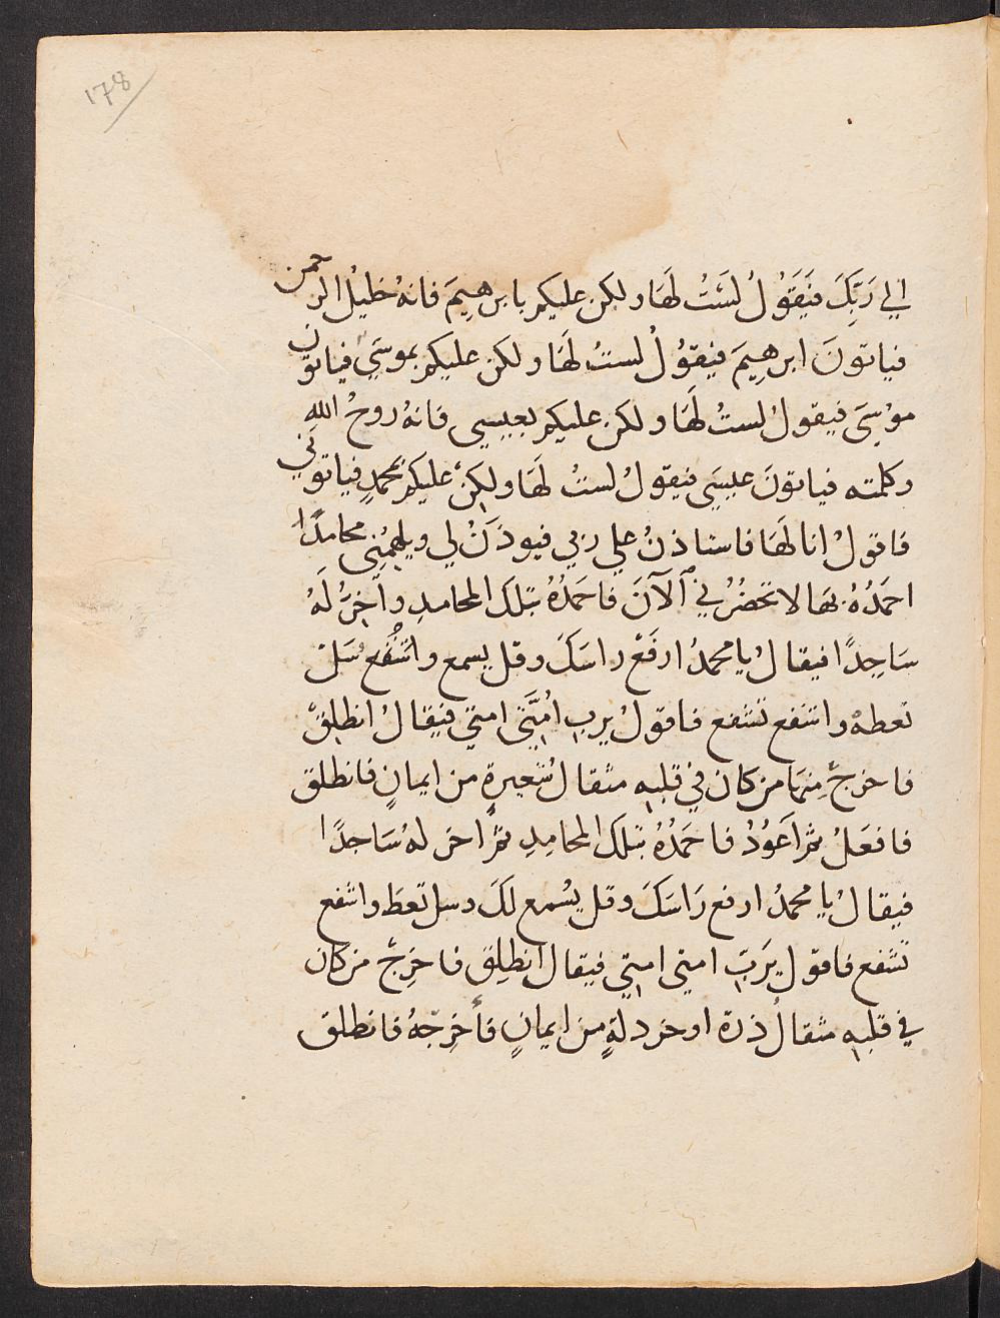 178
الي رَبِّكَ فيَقَوُلُ لسَتُ لَهَا ولكن عليكم بابرهيمَ فانهُ خليلُ الرحمن
فياتونَ ابرهيمَ فيقوُلُ لستُ لَهَا ولكن عليكم بموسَي فياتون
موُسَى فيقولُ لستُ لَهَا ولكن عليكم بعيسى فانهُ روحُ الله
وكلمته فياتونَ عيسَي فيقولُ لستُ لَهَا ولكن عليكم بمحمدٍ فياتوني
فاقولُ انا لَهَا فاستاذنُ علي ربي فيوذَنُ لي ويلهمُنِي محامدًا
احمَدُهُ بهَا لا تحضُرُني الآنَ فاحمَدُهُ بتلك المحامدِ واخِرُّ لَهُ
سَاجِدًا فيقالُ يا محمدُ ارفَعْ راسَكَ وقل يسمع واشفَع سَل
تعطهْ واشفع تشفع فاقولُ يربِ امَّتي امتي فيقالُ انطلِقْ
فاخرجْ مِنهَا من كان في قلبِهِ مثقالُ شعيرةٍ من ايمانٍ فانطلق
فافعَلُ ثم اَعَوُدُ فاحمَدُهُ بتلك المحامِدِ ثمُ اخر لهُ سَاجدًا
فيقالُ يا محمدُ ارفع رَاسَكَ وقل يسُمع لكَ وسل تعطَ واشفع
تشفع فاقول يرَبِّ امتي امتي فيقال انطلِق فاخرِجْ من كان
في قلبِهِ مثقالُ ذرة او خردلةٍ من ايمانٍ فأخرِجهُ فانطلق